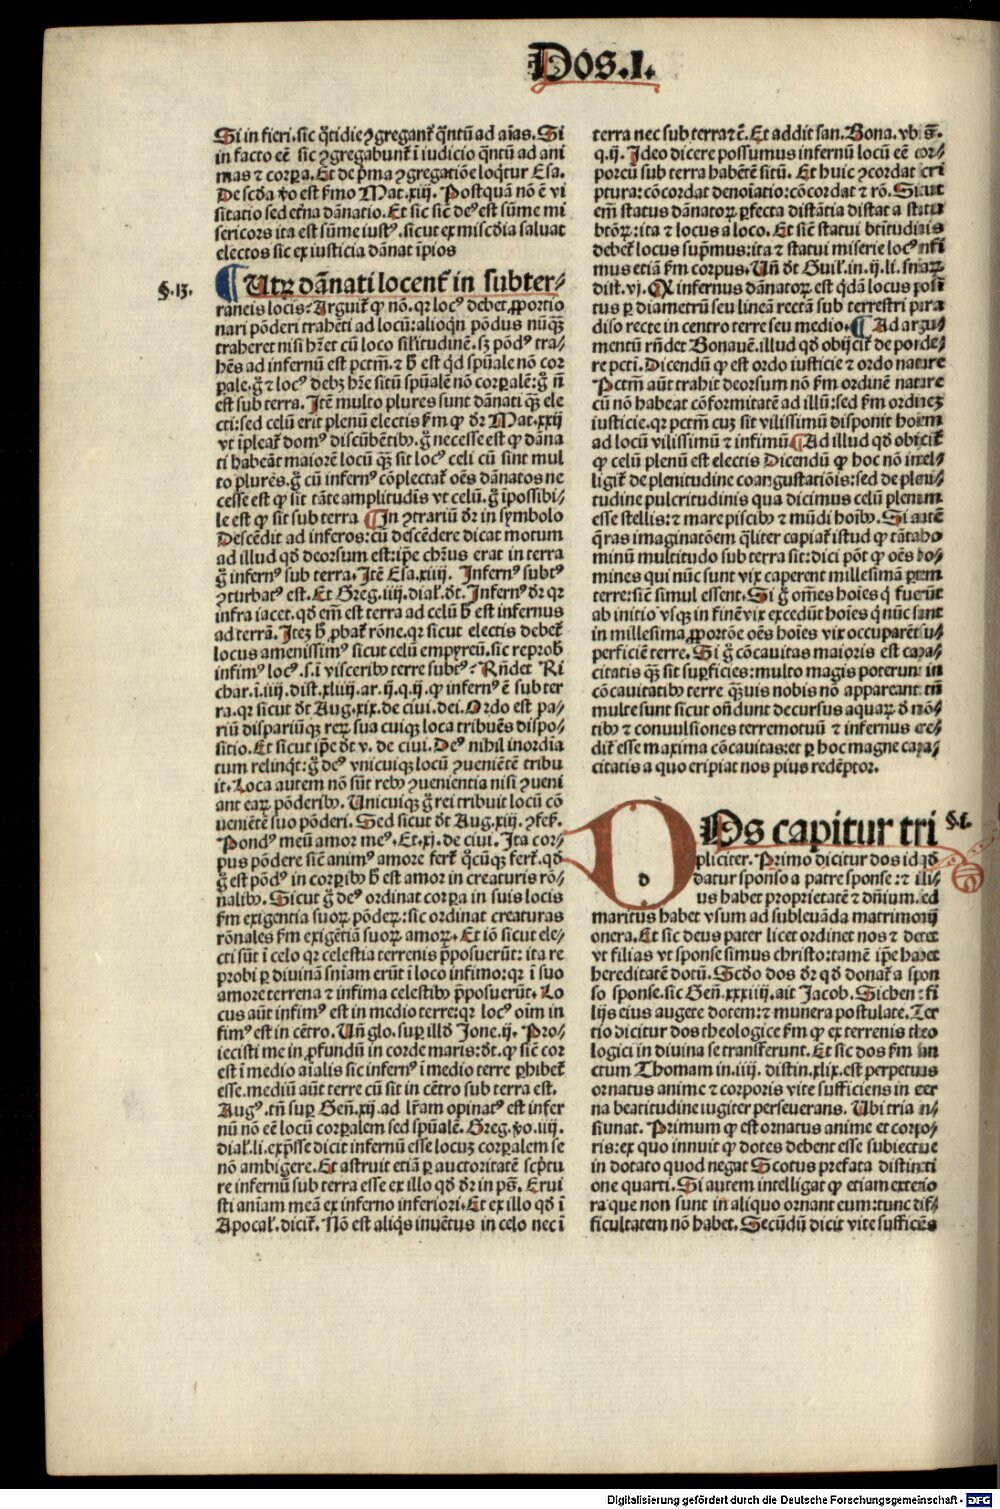 Dos.I.
Si in fieri.sic q̃tidie ꝯgregant᷑ q̃ntū ad aīas. Si
in facto eē sic ꝯgregabunt᷑ ī iudicio q̃ntū ad ani
mas ⁊ corpa. Et de p̄ma ꝯgregatiōe loq̄tur Esa.
De scd̄a v̄o est s̄mo Mat.xiij. Postquā nō ē vi
sitatio sed et̄na dānatio. Et sic sicē deꝰ est sūme mi
sericors ita est sūme iustꝰ.sicut ex mīscd̄ia saluat
electos sic ex iusticia dānat īpios
§.13.
¶ Utꝝ dānati locent᷑ in subter⸗
raneis locis? Arguit᷑ ꝙ nō. qꝛ locꝰ debet ꝓportio
nari pōderi trahēti ad locū: alioqn̄ pōdus nūqꝫ
traheret nisi hr̄et cū loco sil̄itudinē. sꝫ pōdꝰ tra⸗
hēs ad infernū est pctm̄. ⁊ h̄ est qd̄ spūale nō cor
ꝑale. g̊ ⁊ locꝰ debꝫ hr̄e sitū spūalē nō corꝑalē: g̊ nō
est sub terra. Itē multo plures sunt dānati qꝫ ele
cti: sed celū erit plenū electis s̄m ꝙ dr̄ Mat.xxij
vt īpleat᷑ domꝰ discūbētiū. g̊ necesse est ꝙ dāna
ti habeāt maiorē locū qꝫ sit locꝰ celi cū sint mul
to plures. g̊ cū infernꝰ cōplectat᷑ oēs dānatos ne
cesse est ꝙ sit tāte amplitudīs vt celū. g̊ īpossibi⸗
le est ꝙ sit sub terra ¶ In ꝯtrariū dr̄ in symbolo
Descēdit ad inferos: cū descēdere dicat motum
ad illud qd̄ deorsum est: ip̄e chr̄us erat in terra
g̊ infernꝰ sub terra. Itē Esa.xiiij. Infernꝰ subtꝰ
ꝯturbatꝰ est. Et Greg.iiij.dial᷑.dt̄. Infernꝰ dr̄ qꝛ
infra iacet. qd̄ em̄ est terra ad celū h̄ est infernus
ad terrā. Iteꝫ h̄ ꝓbat᷑ rōne. qꝛ sicut electis debet᷑
locus amenissimꝰ sicut celū empyreū. sic reprob̄
infimꝰ locꝰ.s.ī visceribꝰ terre subtꝰ? Rn̄det Ri
char.ī.iiij.dist.xliiij.ar.ij.q.ij.ꝙ infernꝰ ē sub ter
ra. qꝛ sicut dt̄ Aug.xix.de ciui.dei. Ordo est pa⸗
riū dispariūqꝫ reꝝ sua cuiqꝫ loca tribuēs dispo⸗
sitio. Et sicut ip̄e dt̄ v. de ciui. Deꝰ nihil inordīa
tum relinqt: g̊ deꝰ vnicuiqꝫ locū ꝯueniētē tribu
it. Loca autem nō sūt rebꝰ ꝯuenientia nisi ꝯueni
ant eaꝝ pōderibꝰ. Unicuiqꝫ g̊ rei tribuit locū cō
ueniētē suo pōderi. Sed sicut dt̄ Aug.xiij. ꝯfes̄.
Pondꝰ meū amor meꝰ. Et.xj.de ciui. Ita cor⸗
pus pōdere sicē animꝰ amore fert᷑ q̊cūqꝫ fert᷑. qd̄
g̊ est pōdꝰ in corꝑibꝰ h̄ est amor in creaturis rō⸗
nalibꝰ. Sicut g̊ deꝰ ordinat corpa in suis locis
s̄m exigentia suoꝝ pōdeꝝ: sic ordinat creaturas
rōnales s̄m exigētiā suoꝝ amoꝝ. Et iō sicut ele⸗
cti sūt ī celo qꝛ celestia terrenis p̄posuerūt: ita re
probi ꝑ diuinā sn̄iam erūt ī loco infimo: qꝛ ī suo
amore terrena ⁊ infima celestibꝰ p̄posuerūt. Lo
cus aūt infimꝰ est in medio terre: qꝛ locꝰ oīm in
fimꝰ est in cētro. Un̄ glo. suꝑ illd̄ Jone.ij. Pro⸗
iecisti me in ꝓfundū in corde maris: dt̄. ꝙ sicē cor
est ī medio aīalis sic infernꝰ ī medio terre ꝑhibet᷑
esse. mediū aūt terre cū sit in cētro sub terra est.
Augꝰ. tn̄ suꝑ Gen̄.xij.ad lr̄am opinatꝰ est infer
nū nō eē locū corꝑalem sed spūalē. Greg.v̄o.iiij.
dial᷑.li.exp̄sse dicit infernū esse locuꝫ corꝑalem se
nō ambigere. Et astruit etiā ꝑ auctoritatē sc̄ptu
re infernū sub terra esse ex illo qd̄ dr̄ in ps̄. Erui
sti aniam meā ex inferno inferiori. Et ex illo qd̄ ī
Apocal᷑.dicit᷑. Nō est aliq̄s inuētus in celo nec ī
terra nec sub terra ⁊c̄. Et addit san. Bona. vbi s̄.
q.ij. Ideo dicere possumus infernū locū eē cor⸗
porcū sub terra habētē sitū. Et huic ꝯcordat scri
ptura: cōcordat denoīatio: cōcordat ⁊ rō. Sicut
em̄ status dānatoꝝ ꝑfecta distātia distat a statu
btōꝝ: ita ⁊ locus a loco. Et sicē statui btītudinis
debet᷑ locus sup̄mus: ita ⁊ statui miserie locꝰ infi
mus etiā s̄m corpus. Un̄ dt̄ Guil᷑.in.ij.li.sniaꝝ
dist.vj. Qꝙ infernus dānatoꝝ est qd̄ā locus posi
tus ꝑ diametrū seu lineā rectā sub terrestri para
diso recte in centro terre seu medio. ¶ Ad argu⸗
mentū rn̄det Bonauē. illud qd̄ obijcit᷑ de ponde⸗
re pctī. Dicendū ꝙ est ordo iusticie ⁊ ordo nature
Pctm̄ aūt trahit deorsum nō s̄m ordinē nature
cū nō habeat cōformitatē ad illū: sed s̄m ordinēꝫ
iusticie. qꝛ pctm̄ cuꝫ sit vilissimū disponit hoīem
ad locū vilissimū ⁊ infimū. ¶ Ad illud qd̄ obicit᷑
ꝙ celū plenū est electis Dicendū ꝙ hoc nō intel⸗
ligit᷑ de plenitudine coangustatiōis: sed de pleni⸗
tudine pulcritudinis qua dicimus celū plenum
esse stellis: ⁊ mare piscibꝰ ⁊ mūdi hoībꝰ. Si autē
q̄ras imaginatōem qͣliter capiat᷑ istud ꝙ tāta ho
minū multitudo sub terra sit: dici pōt ꝙ oēs ho⸗
mines qui nūc sunt vix caperent millesimā ptem
terre: si ēt simul essent. Si g̊ om̄es hoīes q̊ fuerūt
ab initio vsqꝫ in finē vix excedūt hoīes q̊ nūc sunt
in millesima ꝓportōe oēs hoīes vix occuparēt su⸗
perficiē terre. Si g̊ cōcauitas maioris est capa⸗
citatis qꝫ sit suꝑficies: multo magis poterunt in
cōcauitatibꝰ terre qꝫuis nobis nō appareant: tn̄
multe sunt sicut on̄dunt decursus aquaꝝ d̄ mō⸗
tibꝰ ⁊ conuulsiones terremotuū ⁊ infernus cre⸗
dit᷑ esse maxima cōcauitas: et ꝑ hoc magne capa⸗
citatis a quo eripiat nos pius redēptor.
§.1.
DOs capitur tri
pliciter. Primo dicitur dos id qd̄
datur sponso a patre sponse: ⁊ illi⸗
us habet proprietatē ⁊ dn̄ium. sed
maritus habet vsum ad subleuāda matrimonij
onera. Et sic deus pater licet ordinet nos ⁊ docet
vt filias vt sponse simus christo: tamē ip̄e habet
hereditatē dotū. Scd̄o dos dr̄ qd̄ donat᷑ a spon
so sponse. sic Gen̄.xxxiiij.ait Jacob. Sichen: fi
lijs eius augete dotem: ⁊ munera postulate. Ter
tio dicitur dos theologice s̄m ꝙ ex terrenis theo
logici in diuina se transferunt. Et sic dos s̄m san
ctum Thomam in.iiij. distin.xlix.est perpetuus
ornatus anime ⁊ corporis vite sufficiens in eter
na beatitudine iugiter perseuerans. Ubi tria in⸗
siunat. Primum ꝙ est ornatus anime et corpo⸗
ris: ex quo innuit ꝙ dotes debent esse subiectiue
in dotato quod negat Scotus prefata distincti
one quarti. Si autem intelligat ꝙ etiam exterio
ra que non sunt in aliquo ornant eum: tunc dif⸗
ficultatem nō habet. Secūdū dicit vite sufficiēs
Digitalisierung gefördert durch die Deutsche Forschungsgemeinschaft - DFG